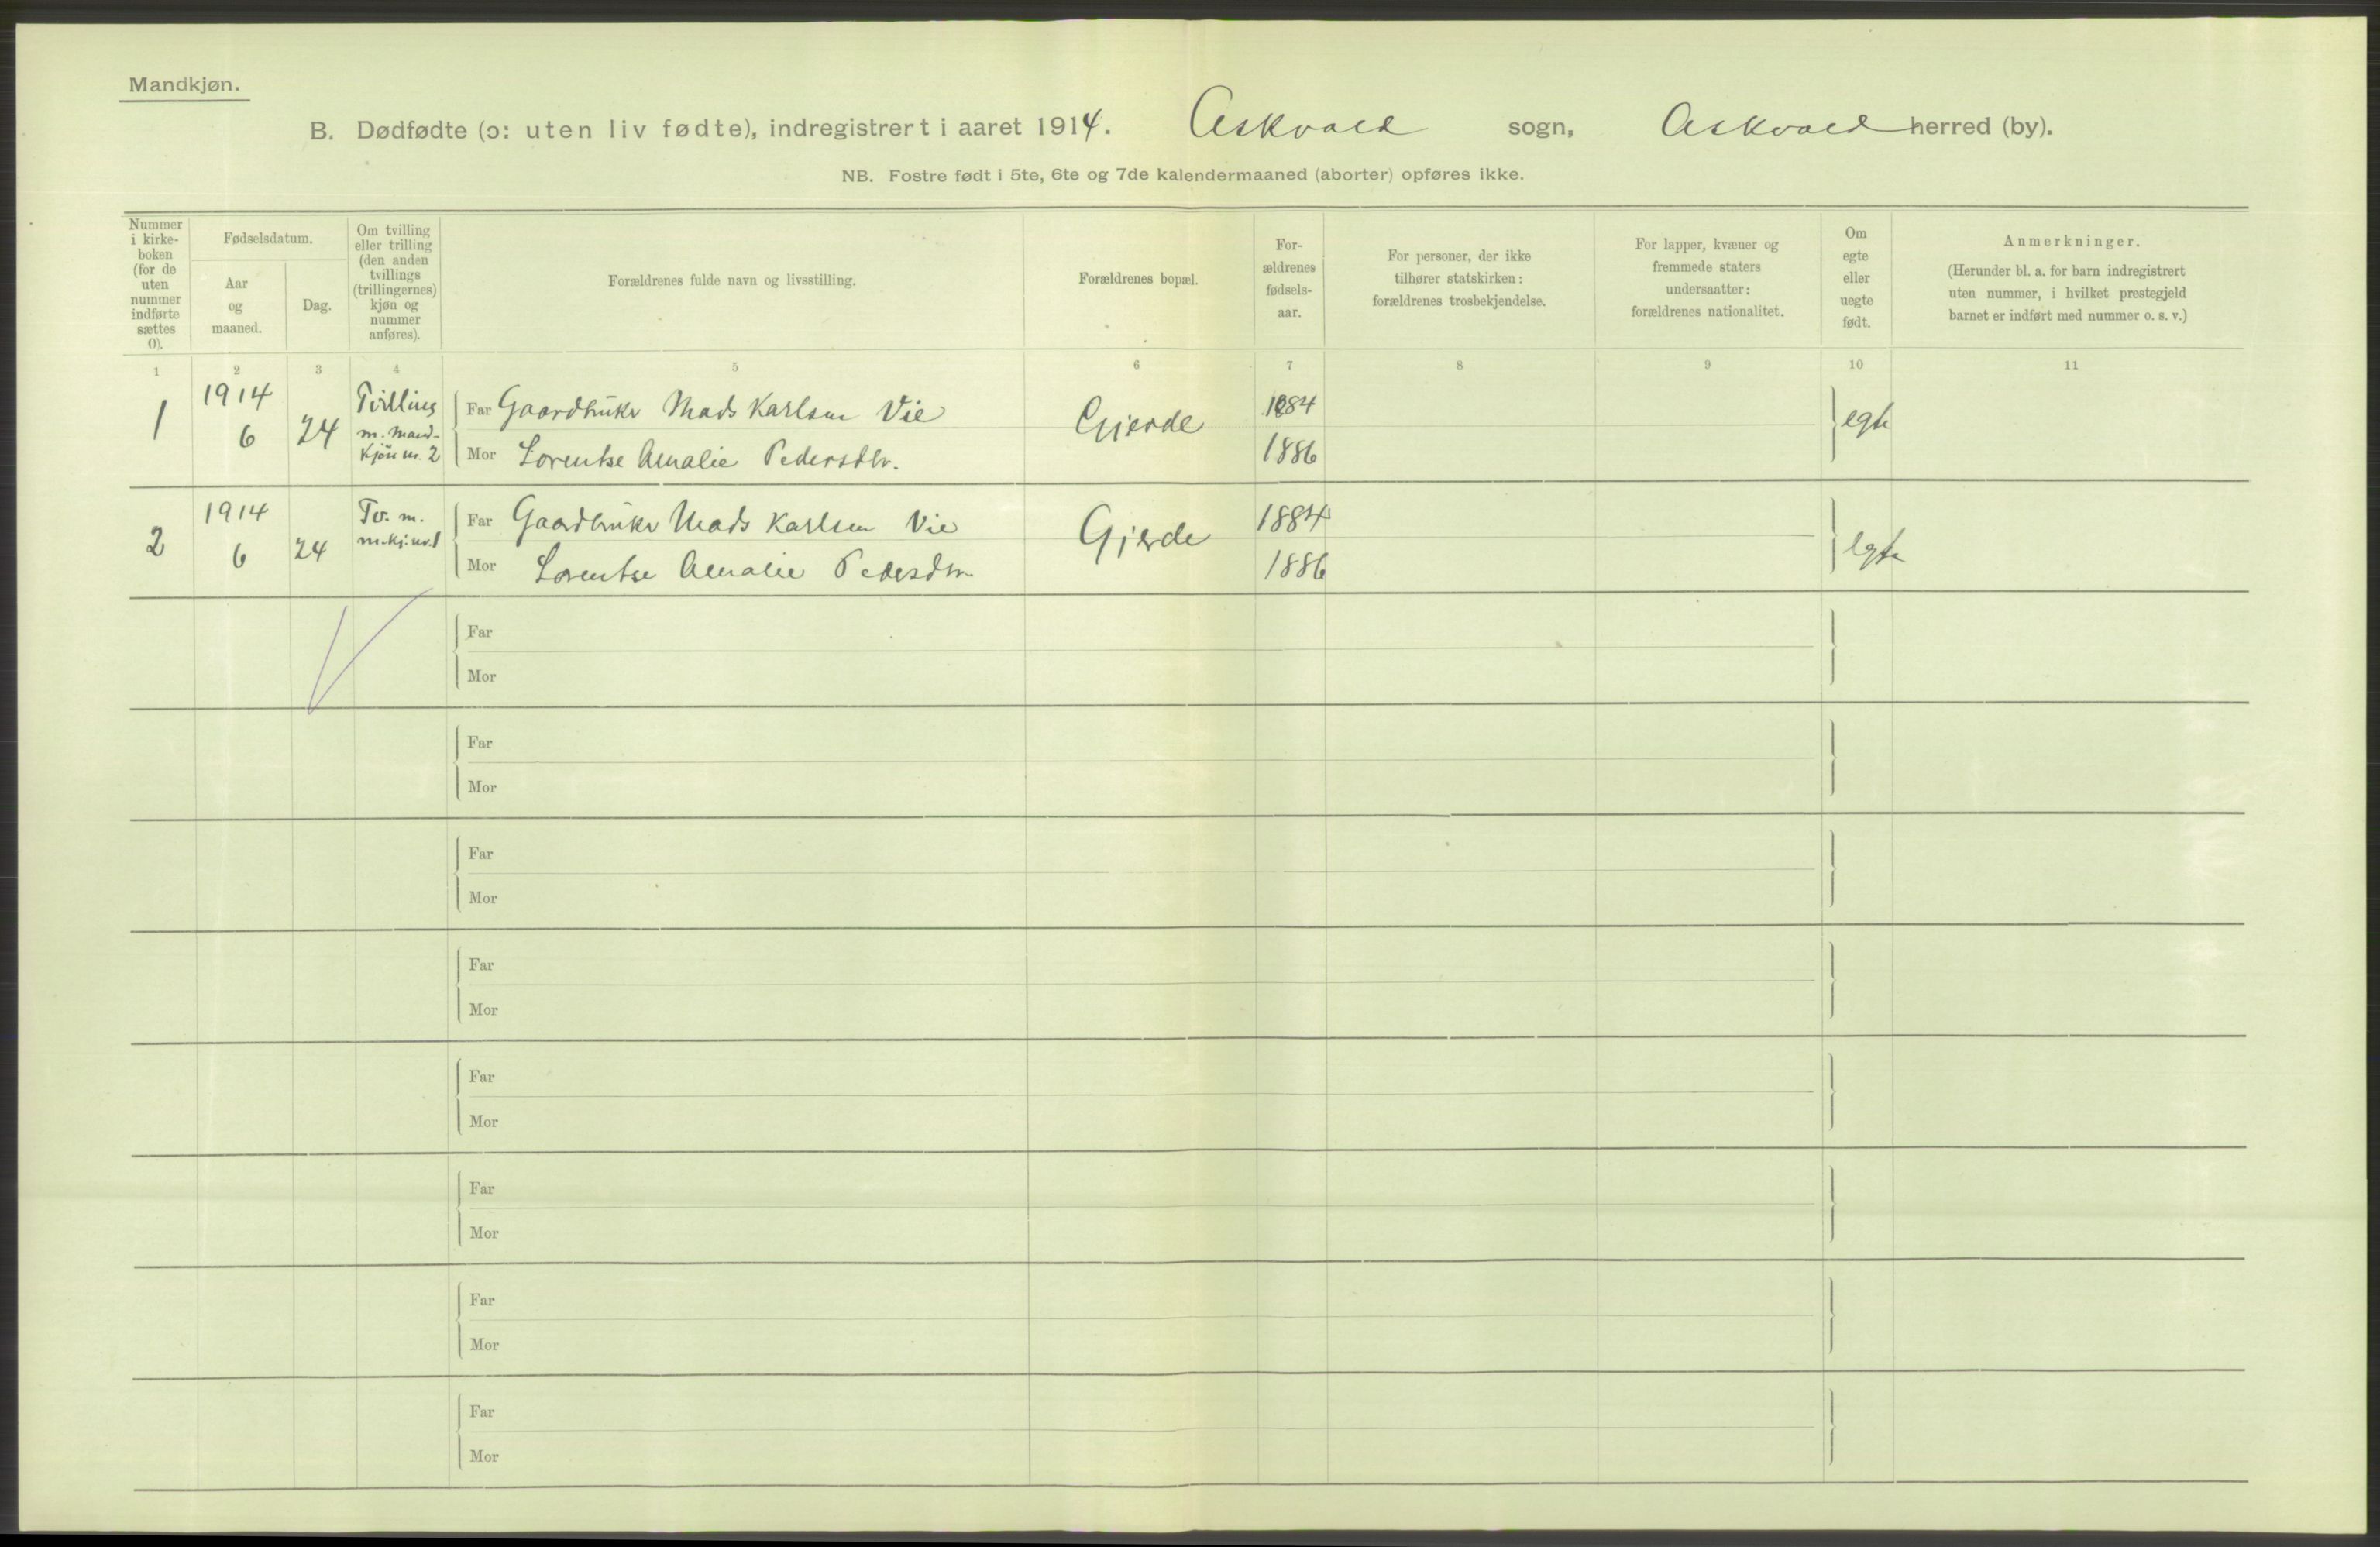 Mandkjøn.
B. Dødfødte (ɔ: uten liv fødte), indregistrert i aaret 1914. Askvold sogn, Askvold herred (by).
NB. Fostre født i 5te, 6te og 7de kalendermaaned (aborter) opføres ikke.
Nummer i kirke- boken (for de uten nummer indførte sættes 0).
Fødselsdatum.
Aar og maaned.
Dag.
Om tvilling eller trilling (den anden tvillings (trillingernes) kjøn og nummer anføres).
Forældrenes fulde navn og livsstilling.
Forældrenes bopæl.
For- ældrenes fødsels- aar.
For personer, der ikke tilhører statskirken: forældrenes trosbekjendelse.
For lapper, kvæner og fremmede staters undersaatter: forældrenes nationalitet.
Om egte eller uegte født.
Anmerkninger.
(Herunder bl. a. for barn indregistrert uten nummer, i hvilket prestegjeld barnet er indført med nummer o. s. v.)
1 2 3 4 5 6 7 8 9 10 11
1 1914 6 24 Tvilling m. Mand- kjön nr. 2
Far Gaardbruker Mads Karlsen Vie Gjerde 1884 egte
Mor Lorentse Amalie Pedersdtr. 1886
2 1914 6 24 Tv. m. m.kj. nr. 1
Far Gaardbruker Mads Karlsen Vie Gjerde 1884 egte
Mor Lorentse Amalie Pedersdtr 1886
Far
Mor
Far
Mor
Far
Mor
Far
Mor
Far
Mor
Far
Mor
Far
Mor
Far
Mor